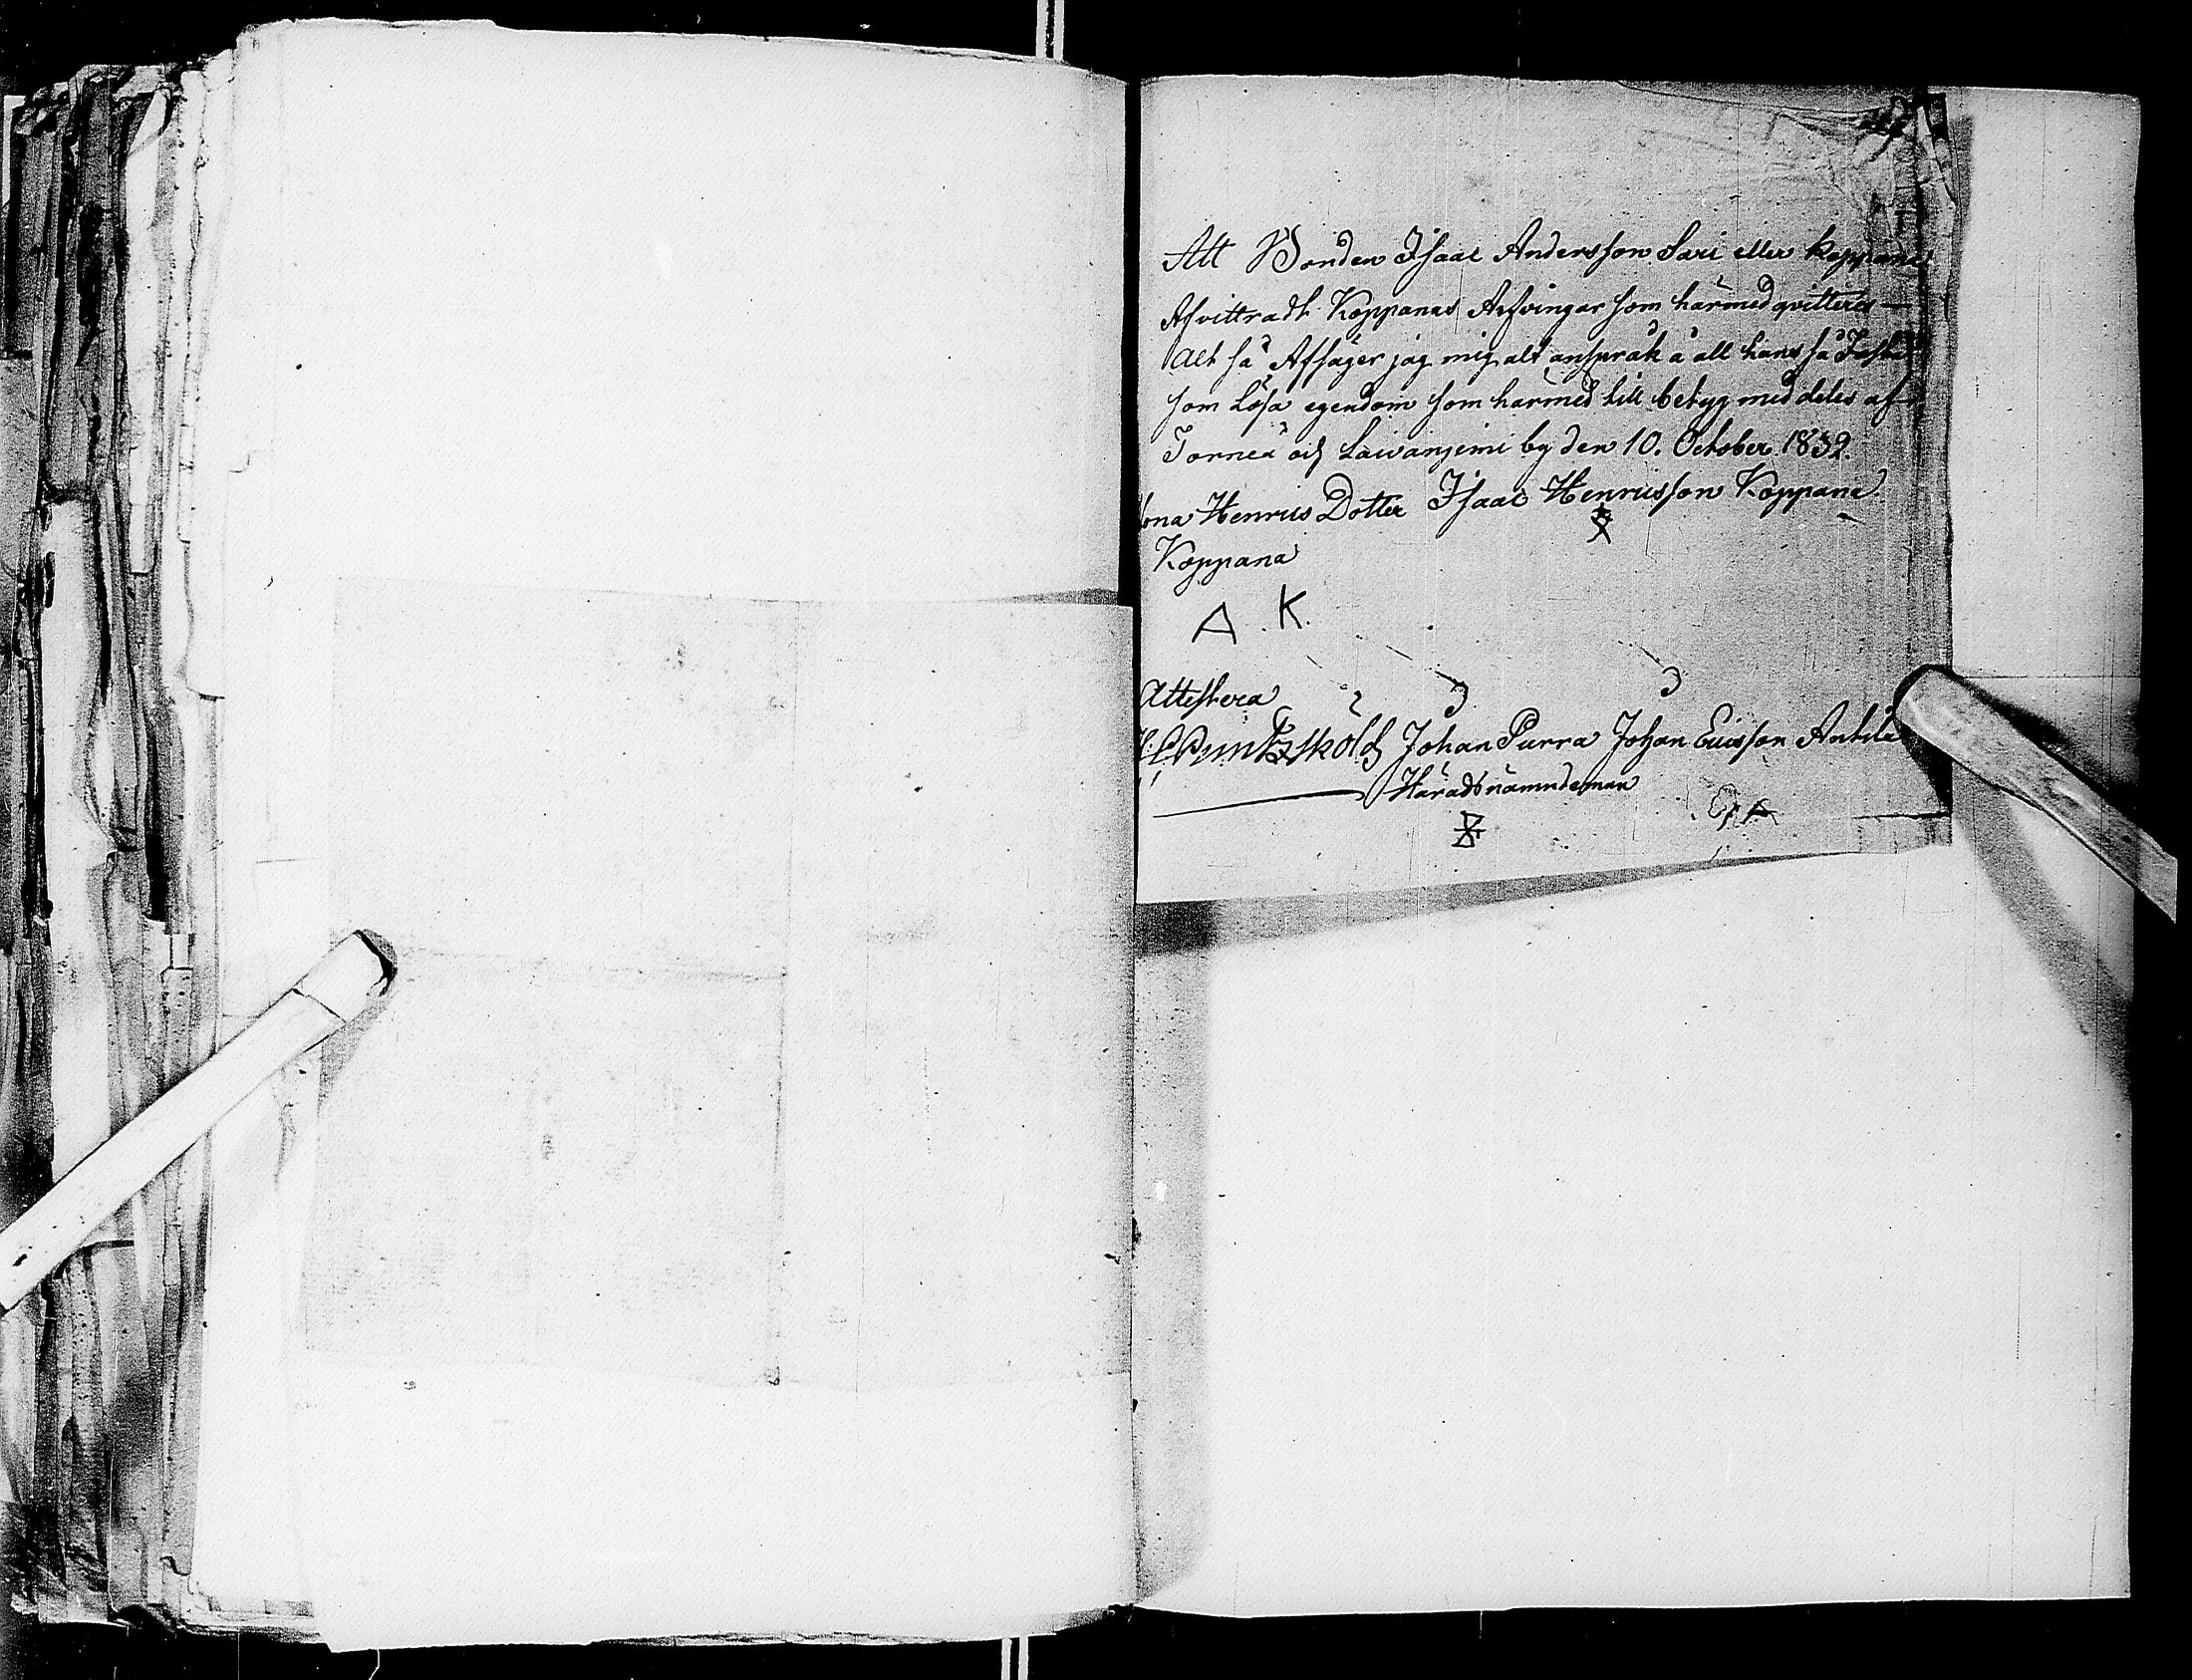 Att Bonden Isaac Andersson Sari eller Koppana
Afvittradt Koppanas Arfvingar som härmed qvitteras —
Alt så Afsäger jag mig alt anspråk å all hans så Fasta
som Lösa egendom som härmed till betyg meddeles af
Torneå och Laivanjemi by den 10. October 1832.
Henrics Dotter Isaac Henricsson Koppana
Koppana
A. K.
Attestera
Johan Purra Johan Ericsson Anttila
Häradsnämndeman